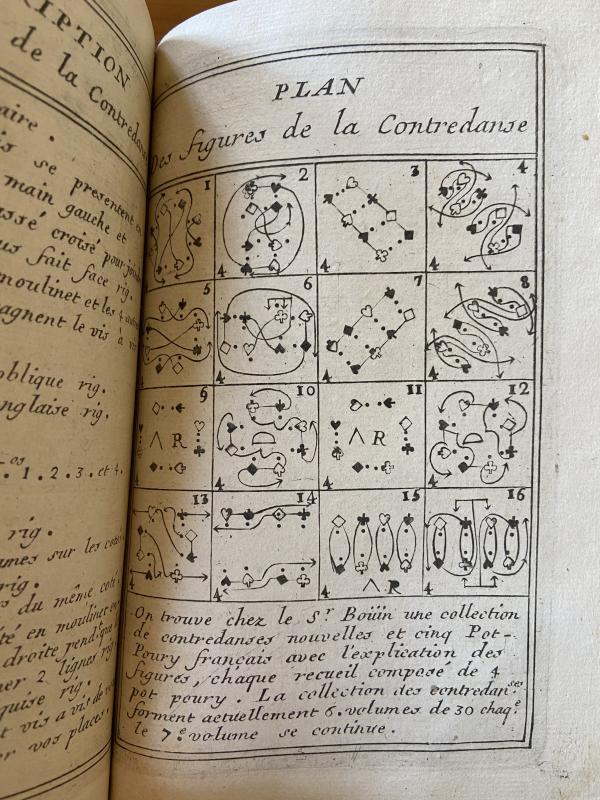 RIPTION
de la Contredanse
aire.
is se presentent en
main gauche et
ssé croisé pour
us fait face rig.
moulinet et les 4 autres
agnent le vis à vis
oblique rig.
nglaise rig.
.os 1. 2. 3. et 4.
rig.
umes sur les
rig.
du même coté
té en moulinet
droite
ner 2 lignes rig.
quise rig.
t vis a vis de
r vos places.
PLAN
Des figures de la Contredanse
1 2 3 4
4 4 4
5 6 7 8
4 4 4 4
9 10 11 12
Λ R Λ R
4 4
13 14 15 16
Λ R
4 4 4
On trouve chez le Sr Boüin une collection
de contredanses nouvelles et cinq Pot-
Poury français avec l'explication des
figures, chaque recueil composé de 4
pot poury. La collection des contredanses
forment actuellement 6. volumes de 30 chaq.e
le 7.e volume se continue.